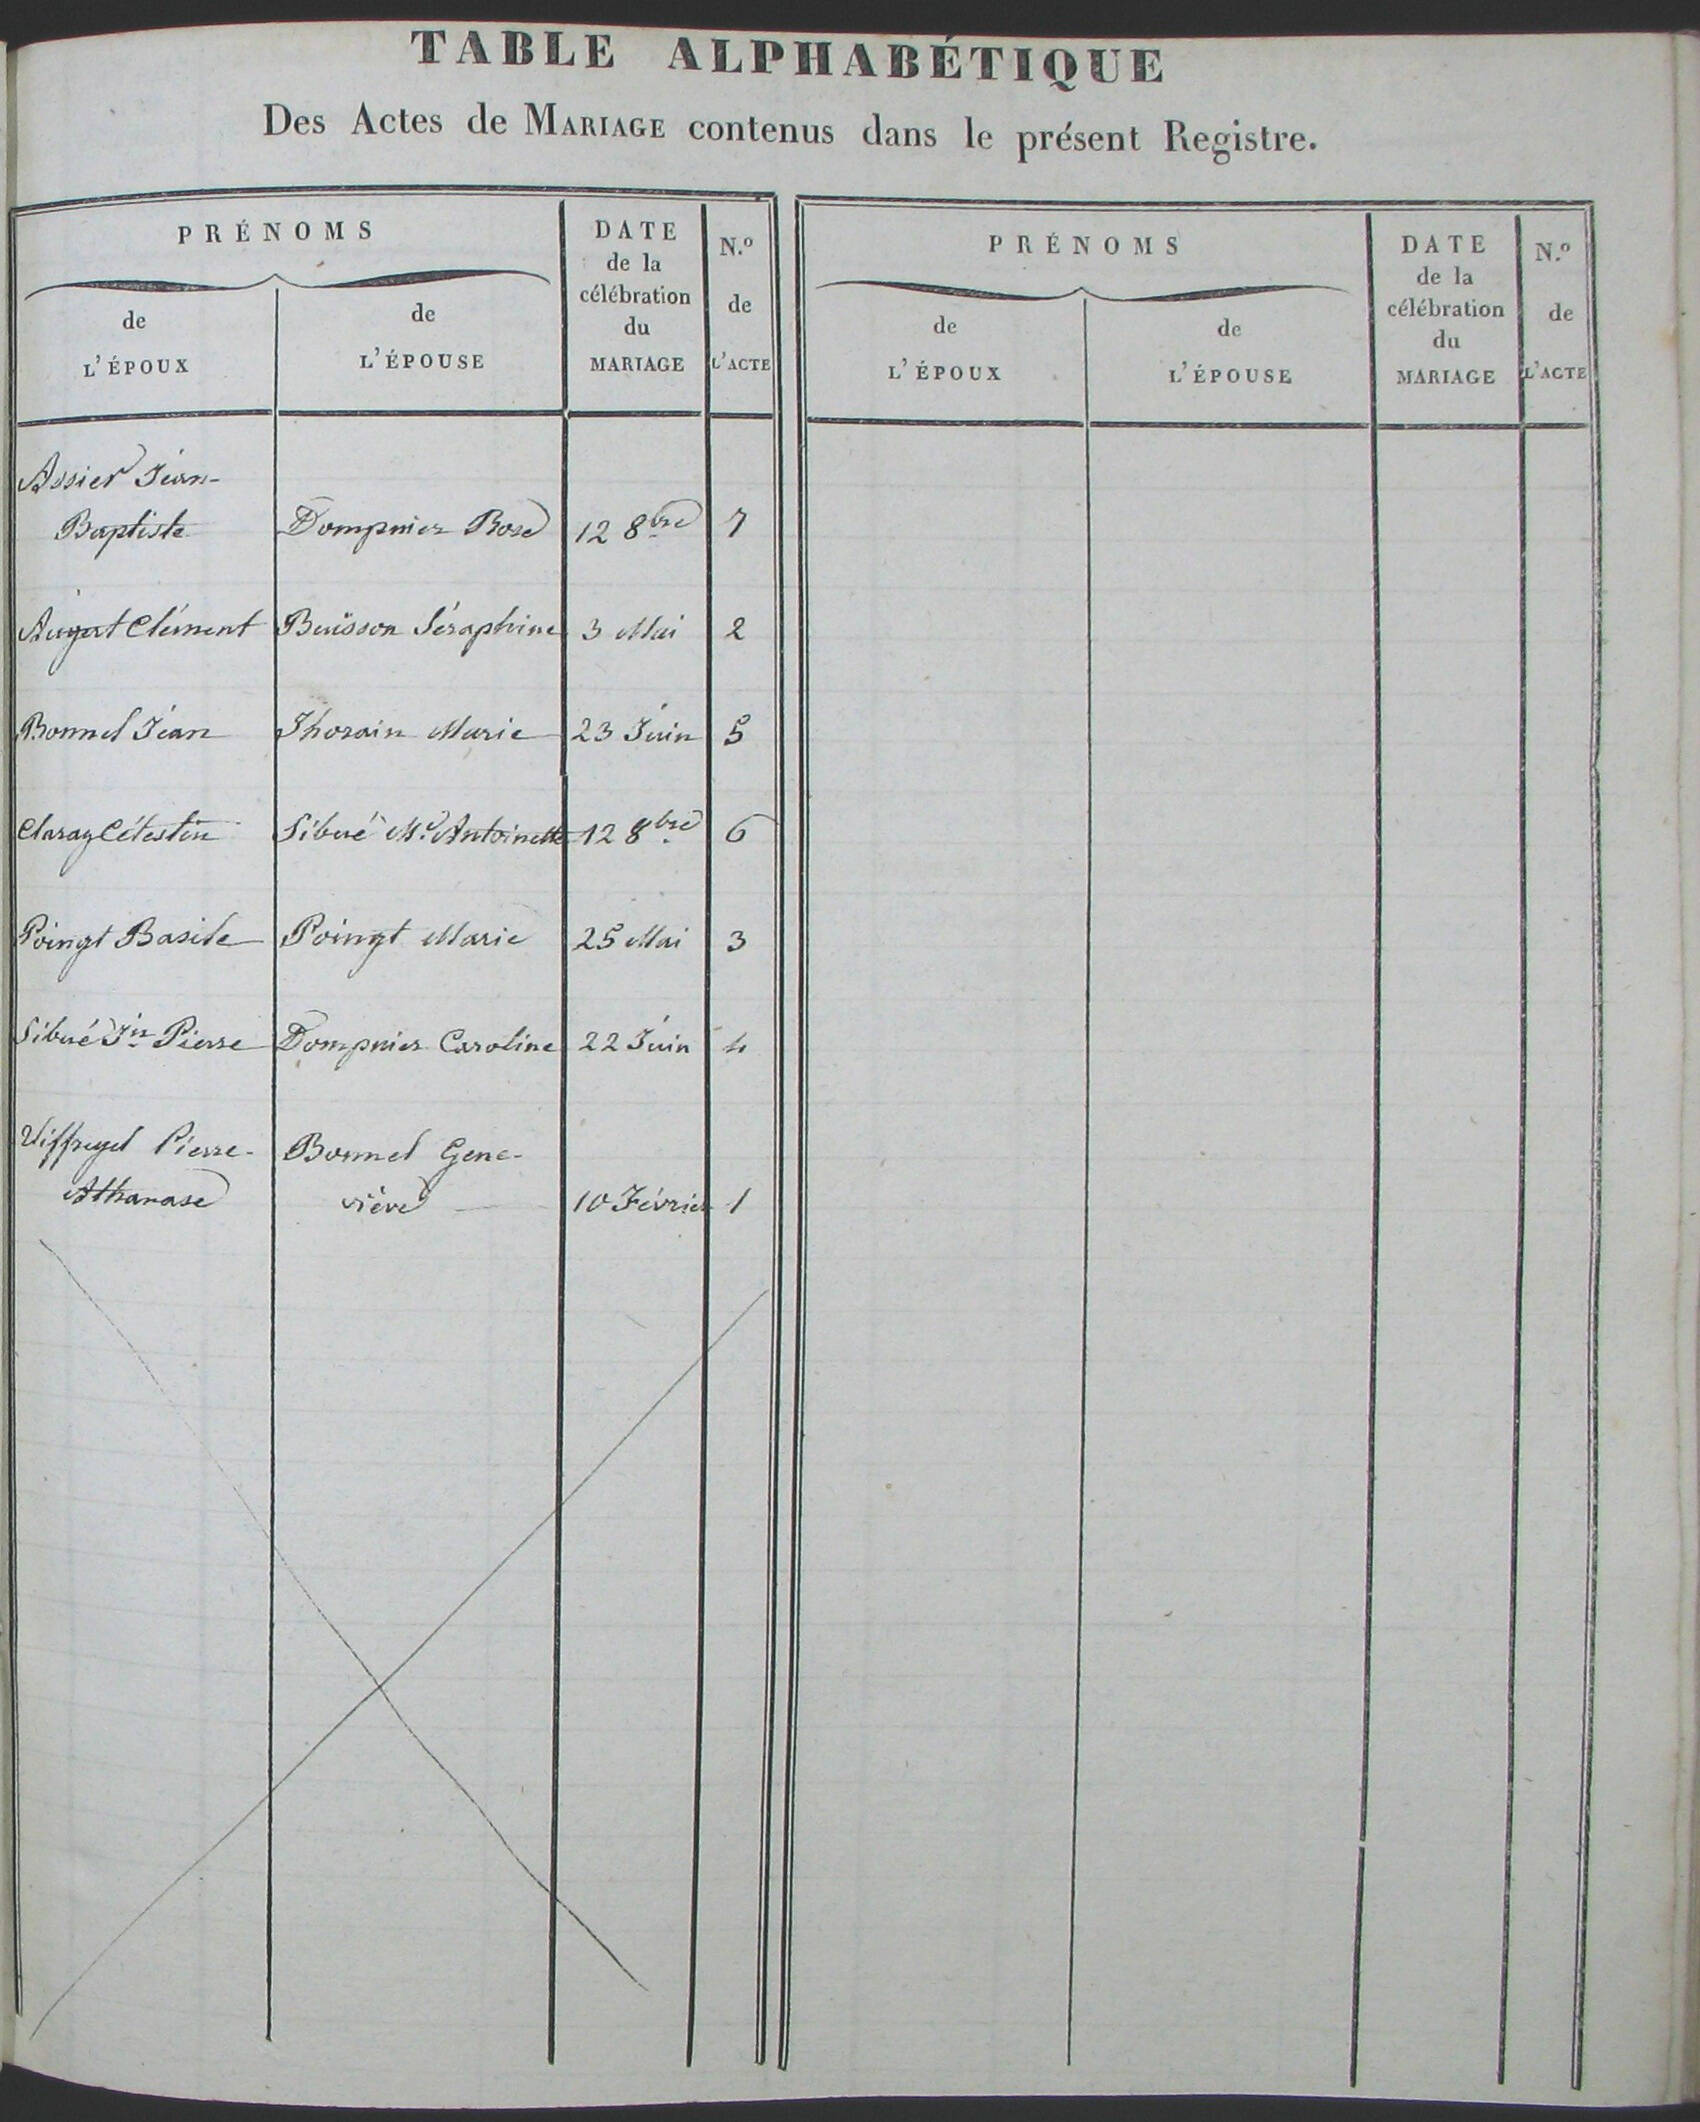 TABLE ALPHABÉTIQUE
Des Actes de MARIAGE contenus dans le présent Registre.
PRÉNOMS
de
L'ÉPOUX
de
L'ÉPOUSE
DATE
de la
célébration
du
MARIAGE
N.º
de
L'ACTE
PRÉNOMS
de
L'ÉPOUX
de
L'ÉPOUSE
DATE
de la
célébration
du
MARIAGE
N.º
de
L'ACTE
Assier Jean-
Baptiste Dompnier Rose 12 8bre 7
Augert Clément Buisson Séraphine 3 Mai 2
Bonnel Jean Thorain Marie 23 Juin 5
Claraz Célestin Sibué Me. Antoinette 12 8bre 6
Poingt Basile Poingt Marie 25 Mai 3
Sibué Jn Pierre Dompnier Caroline 22 Juin 4
Viffreyel Pierre- Bonnel Gene-
Athanase viève 10 Février 1